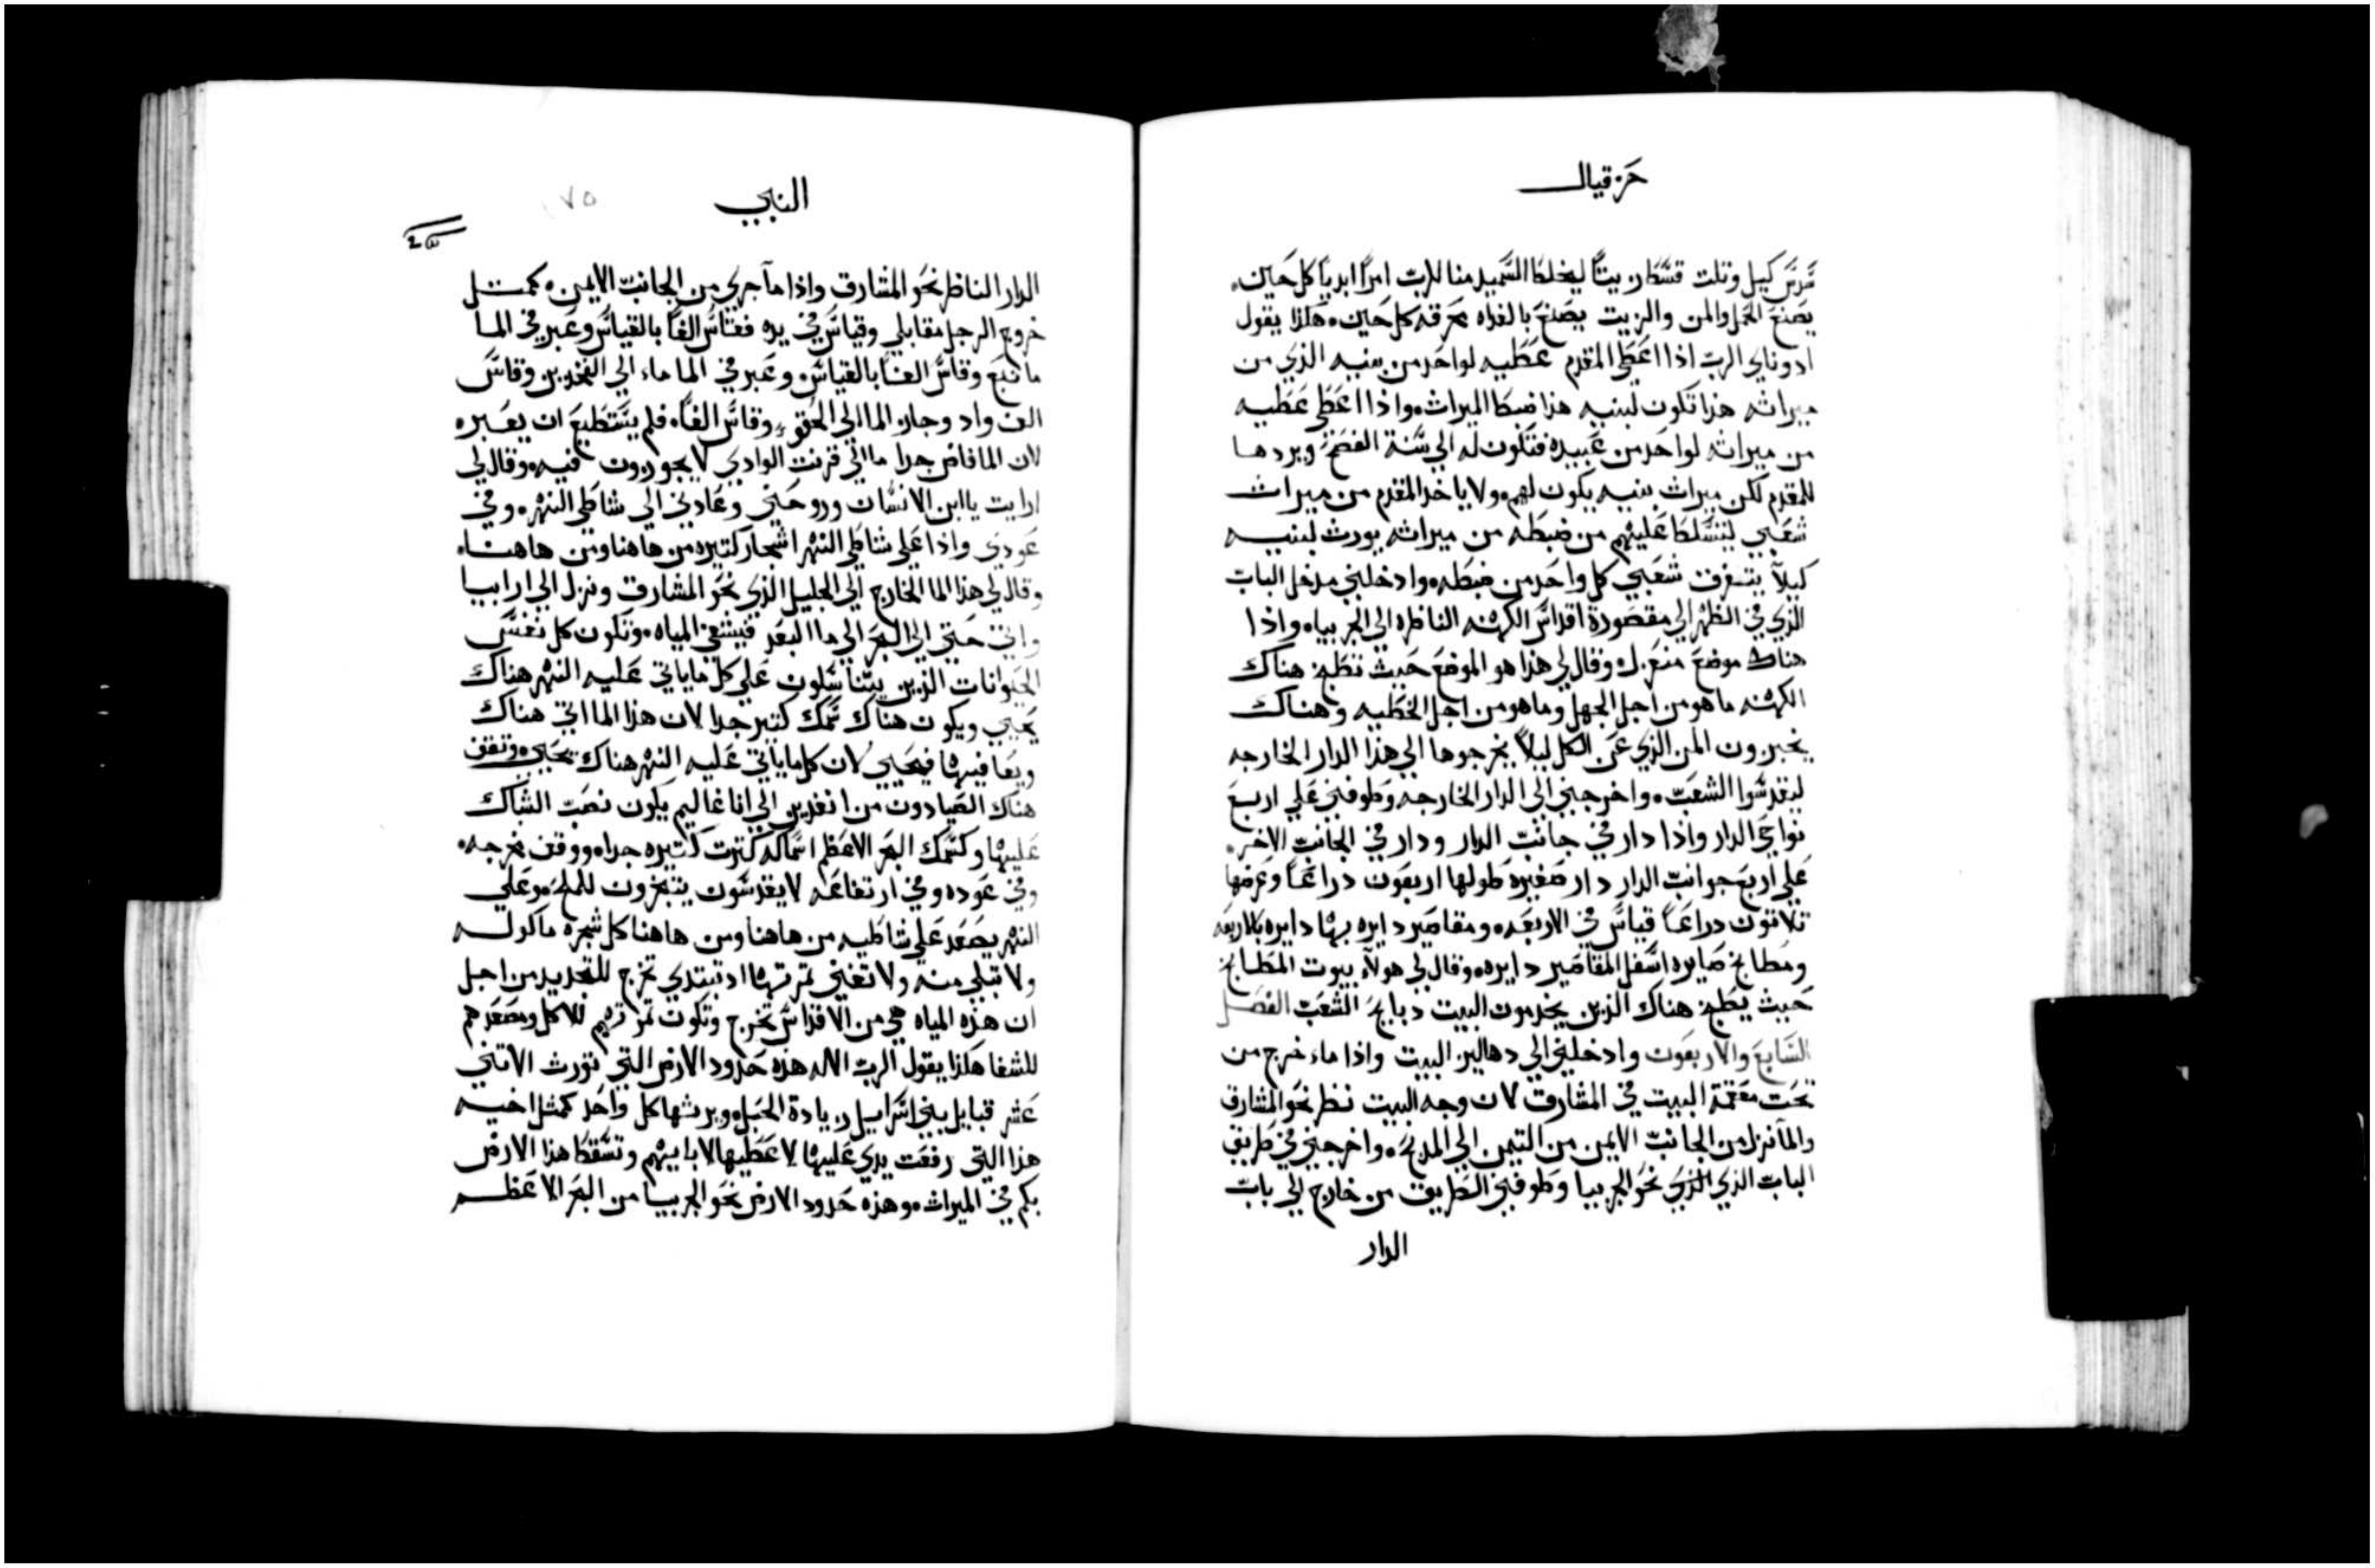 حزقيال
كيل وتلت قسط زيتًا ليخلط السميد منا للرب امرًا ابديًا كل حين
يصنع الحمل والمن والزيت يصنع بالغداه محرقه كل حين هكذا يقول
ادوناي الرب اذا اعطي المقدم عطيه لواحد من بنيه الذي من
ميراثه هذا تكون لبنيه هذا ضبط الميراث واذا اعطي عطيه
من ميراثه لواحد من عبيده فتكون له الي سنة الفصح ويردها
للمقدم لكن ميراث بنيه يكون لهم ولا ياخد المقدم من ميراث
شعبي ليتسلط عليهم من ضبطه من ميراثه يورث لبنيه
كيلا يتفرق شعبي كل واحد من ضبطه وادخلني مدخل الباب
الذي في الظهر الي مقصورة اقداس الكهنه الناظره الي الجربيا واذا
هناك موضع منعزل وقال لي هذا هو الموضع حيث تطبخ هناك
الكهنه ما هو من اجل الجهل وما هو من اجل الخطيه وهناك
يخبزون المن الذي عن الكل ليلا يخرجوها الي هذا الدار الخارجه
ليقدسوا الشعب واخرجني الي الدار الخارجه وطوفني علي اربع
نواحي الدار واذا دار في جانب الدار ودار في الجانب الاخر
علي اربع جوانب الدار دار صغيره طولها اربعون دراعًا وعرضها
تلاتون دراعًا قياس في الاربعه ومقاصير دايره بها دايره بالاربعه
ومطابخ صايره اسفل المقاصير دايره وقال لي هولاء بيوت المطابخ
حيث يطبخ هناك الذين يخدمون البيت دبايح الشعب الفصل
السابع والاربعون وادخلني الي دهاليز البيت واذا ماء خرج من
تحت مقمة البيت في المشارق لان وجه البيت نظر نحو المشارق
والما نزل من الجانب الايمن من التيمن الي المدبح واخرجني في طريق
الباب الذي الذي نحو الجربيا وطوفني الطريق من خارج الي باب
الدار
النبي
١٧٥
الدار الناظر نحو المشارق واذا مآ جري من الجانب الايمن كمتل
خروج الرجل مقابلي وقياس في يده فقاس الفًا بالقياس وعبر في المآ
ما نبع وقاس الفًا بالقياس وعبر في الما ماء الي الفخدين وقاس
الف واد وجاز الما الي الحقو وقاس الفًا فلم يستطيع ان يعبره
لان الما فاض جدا ما الي قرنت الوادي لا يجوزون فيه وقال لي
ارايت يا ابن الانسان وروحني وعادني الي شاطي النهر وفي
عودي واذا علي شاطي النهر اشجار كتيره من هاهنا ومن هاهنا
وقال لي هذا الما الخارج الي الجليل الذي نحو المشارق ونزل الي ارابيا
واتي حتي الي البحر الي ما البعد فيشفي المياه وتكون كل نفس
الحيوانات الذين يتناسلون علي كل ما ياتي عليه النهر هناك
يحيي ويكون هناك سمك كتير جدا لان هذا الما اتي هناك
ويعافيها فيحيي لان كل ما ياتي عليه النهر هناك يحيي وتقف
هناك الصيادون من انغدين الي اناغاليم يكون نصب الشباك
عليها وكسمك البحر الاعظم اسماكه كترت كتيره جدا ووقف مخرجه
وفي عوده وفي ارتفاعه لا يقدسون يتبخرون للملح وعلي
النهر يصعد علي شاطيه من هاهنا ومن هاهنا كل شجرة ماكوله
ولا تبلي منه ولا تفني تمرتها اد تبتدي تخرج للتجديد من اجل
ان هذه المياه هي من الاقداس تخرج وتكون تمرتهم للاكل ومصعدهم
للشفا هكذا يقول الرب الاله هذه حدود الارض التي تورث الاتني
عشر قبايل بني اسراييل زيادة الحبل ويرثها كل واحد كمثل اخيه
هذا التي رفعت يدي عليها لاعطيها لابايهم وتسقط هذا الارض
بكم في الميراث وهذه حدود الارض نحو الجربيا من البحر الاعظم